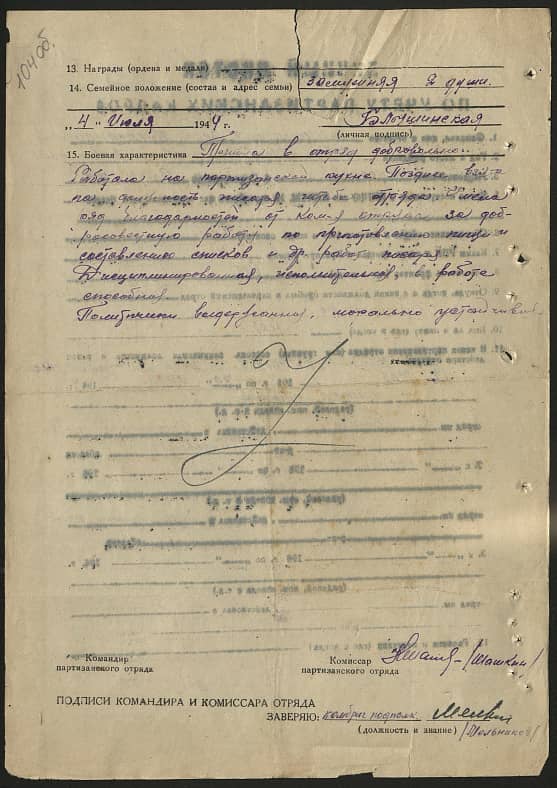 104 об.
13. Награды (ордена и медали)
14. Семейное положение (состав и адрес семьи) замужняя 2 души.
„4" Июля 1944 г. Блощинская
(личная подпись)
15. Боевая характеристика Пришла в отряд добровольно.
Работала на партизанской кухне. Позднее
на должность писаря штаба отряда. Имела
ряд благодарностей от ком-я отряда за доб-
росовестную работу по приготовлению пищи и
составлению списков и др. работа писаря
Дисциплинированная, исполнительная, в работе
способная
Политически выдержанная, морально устойчивая.
Командир
партизанского отряда
Комиссар
партизанского отряда
/Шашкин/
ПОДПИСИ КОМАНДИРА И КОМИССАРА ОТРЯДА
ЗАВЕРЯЮ: комбриг подполк.
(должность и звание) /Мельников/